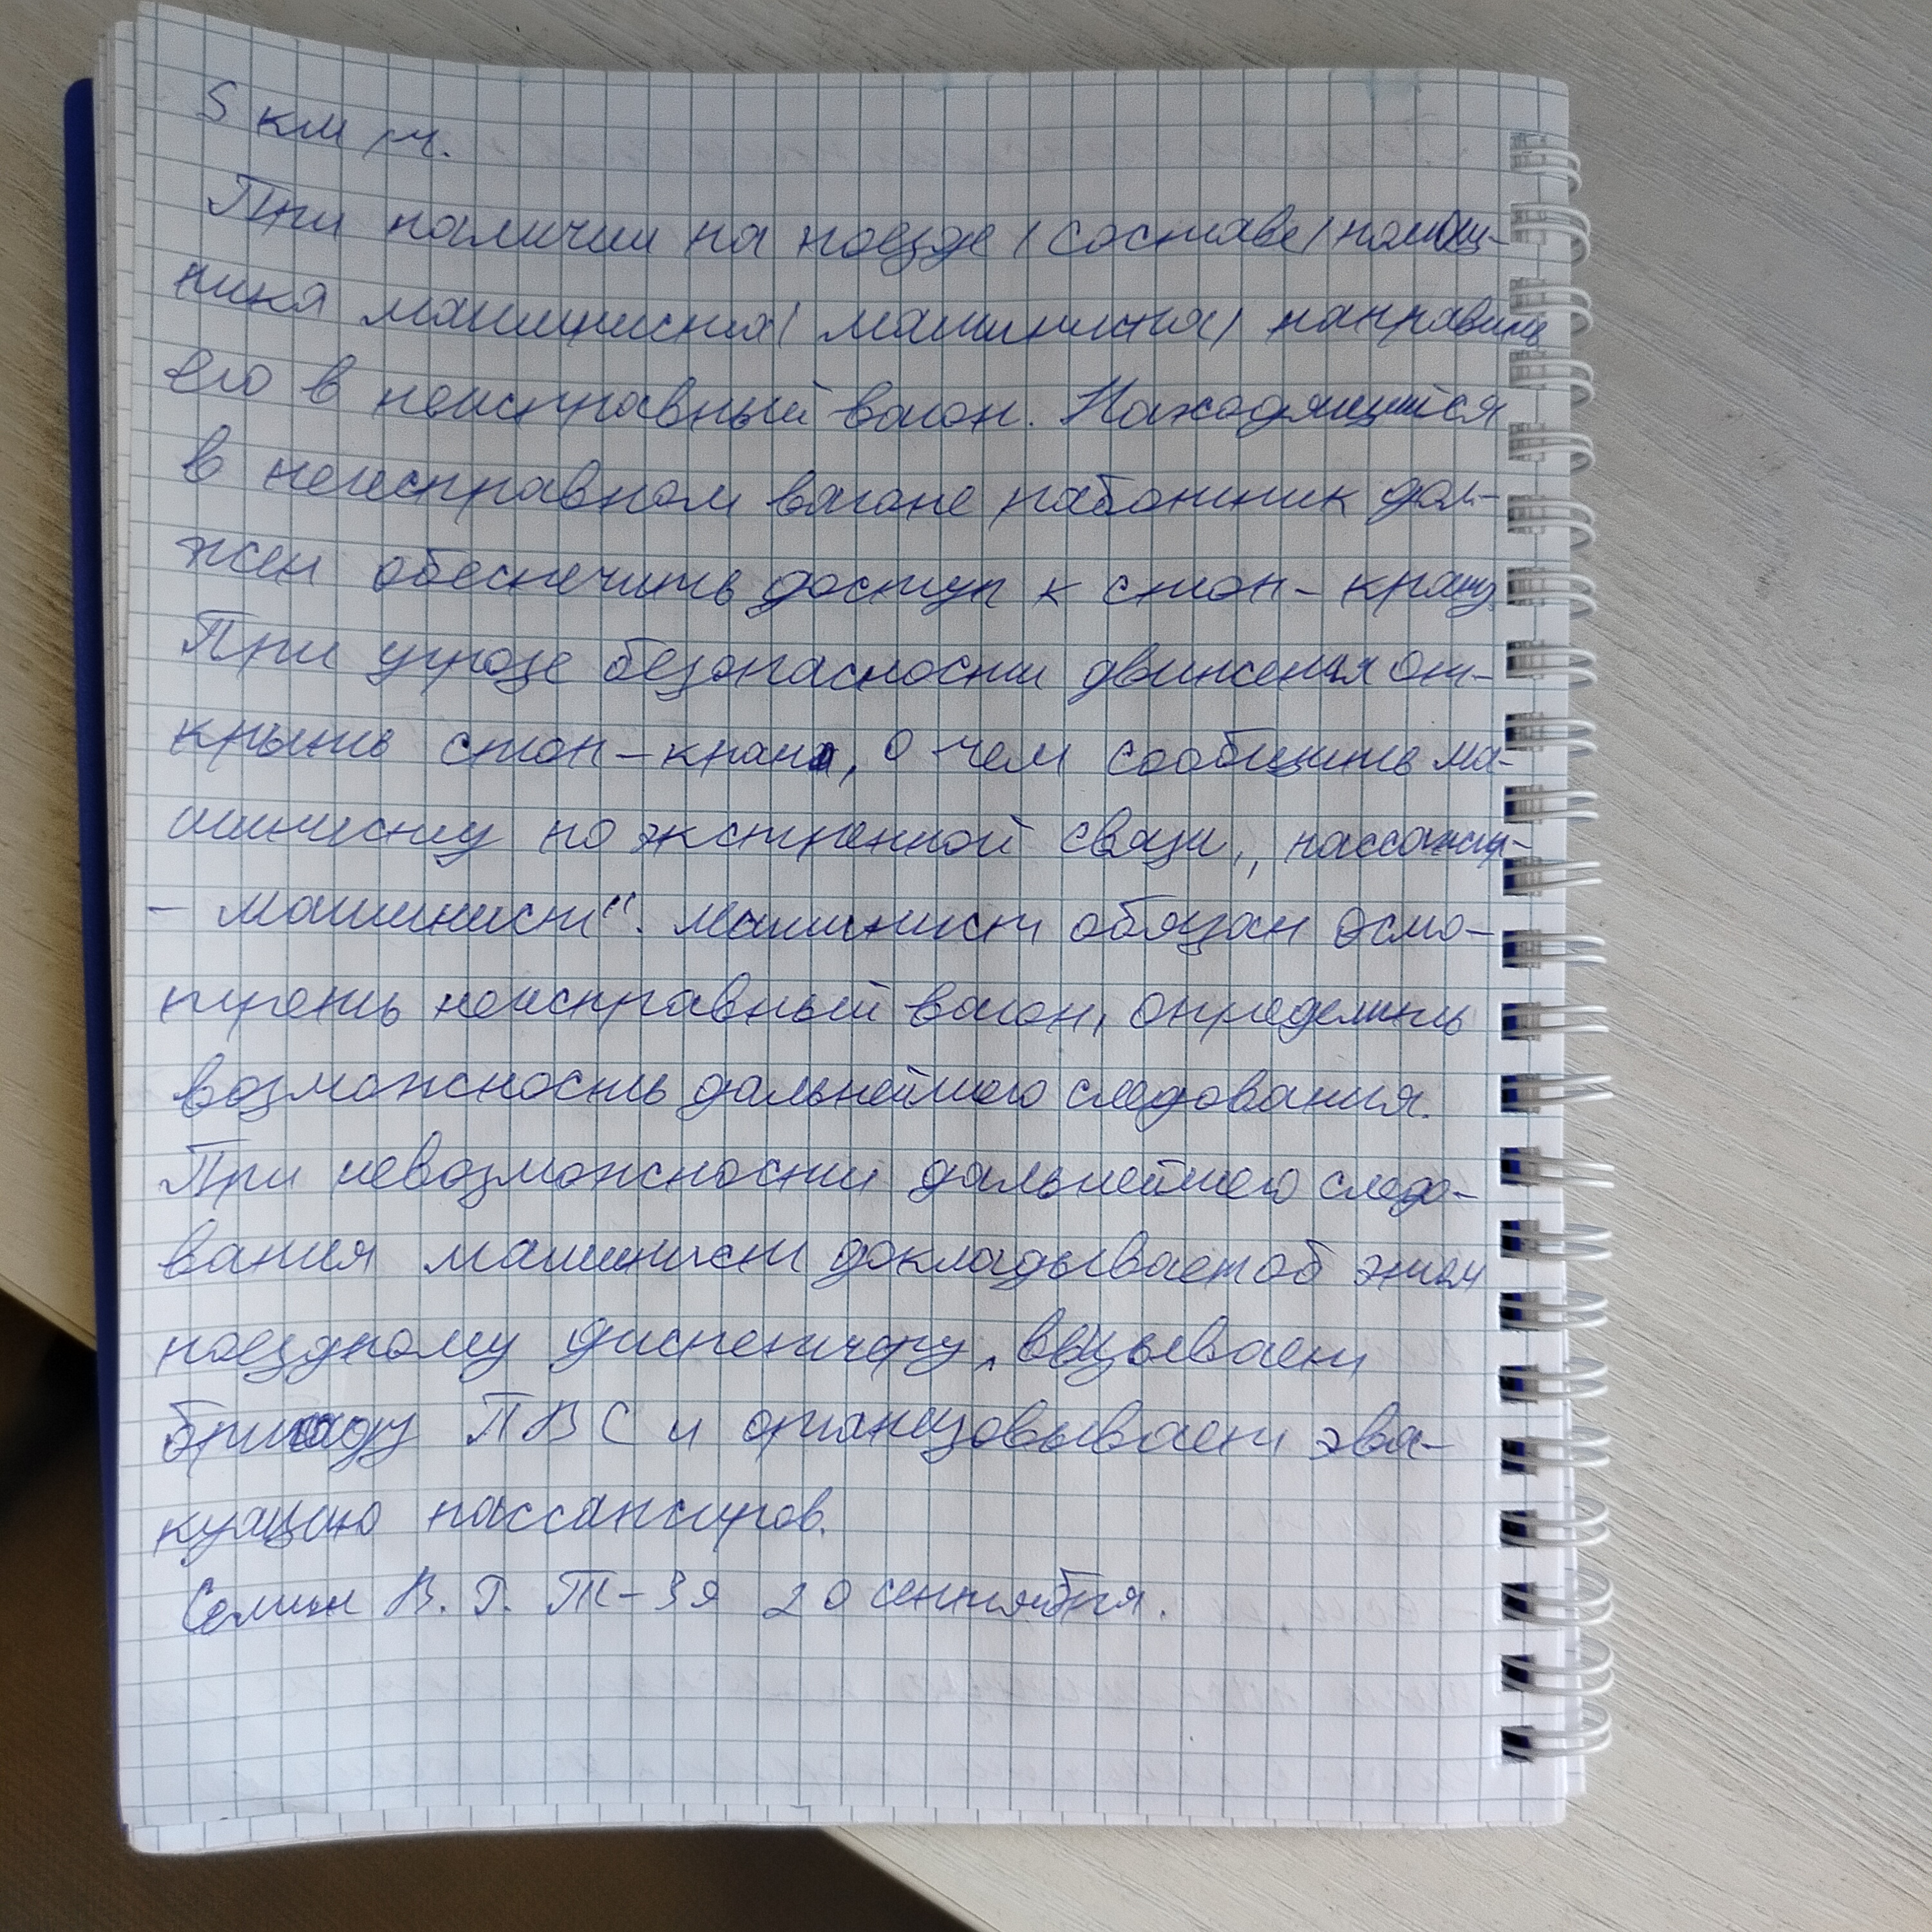 5 км/ч.
При наличии на поезде /составе/ помощ-
ника машиниста/ машиниста/ направить
его в неисправный вагон. Находящийся
в неисправном вагоне работник дол-
жен обеспечить доступ к стоп-крану.
При угрозе безопасности движения от-
крыть стоп-кран, о чем сообщить ма-
шинисту по экстренной связи „пассажир-
- машинист“. Машинист обязан осмо-
треть неисправный вагон, определить
возможность дальнейшего следования.
При невозможности дальнейшего следо-
вания машинист докладывает об этом
поездному диспетчеру, вызывает
бригаду ПВС и организовывает эва-
куацию пассажиров.
Семин В. Г. Т-3Я 20 сентября.